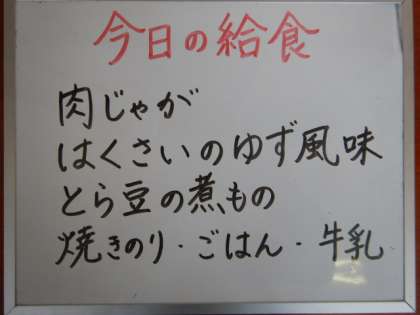 今日の給食
肉じゃが
はくさいのゆず風味
とら豆の煮もの
焼きのり・ごはん・牛乳